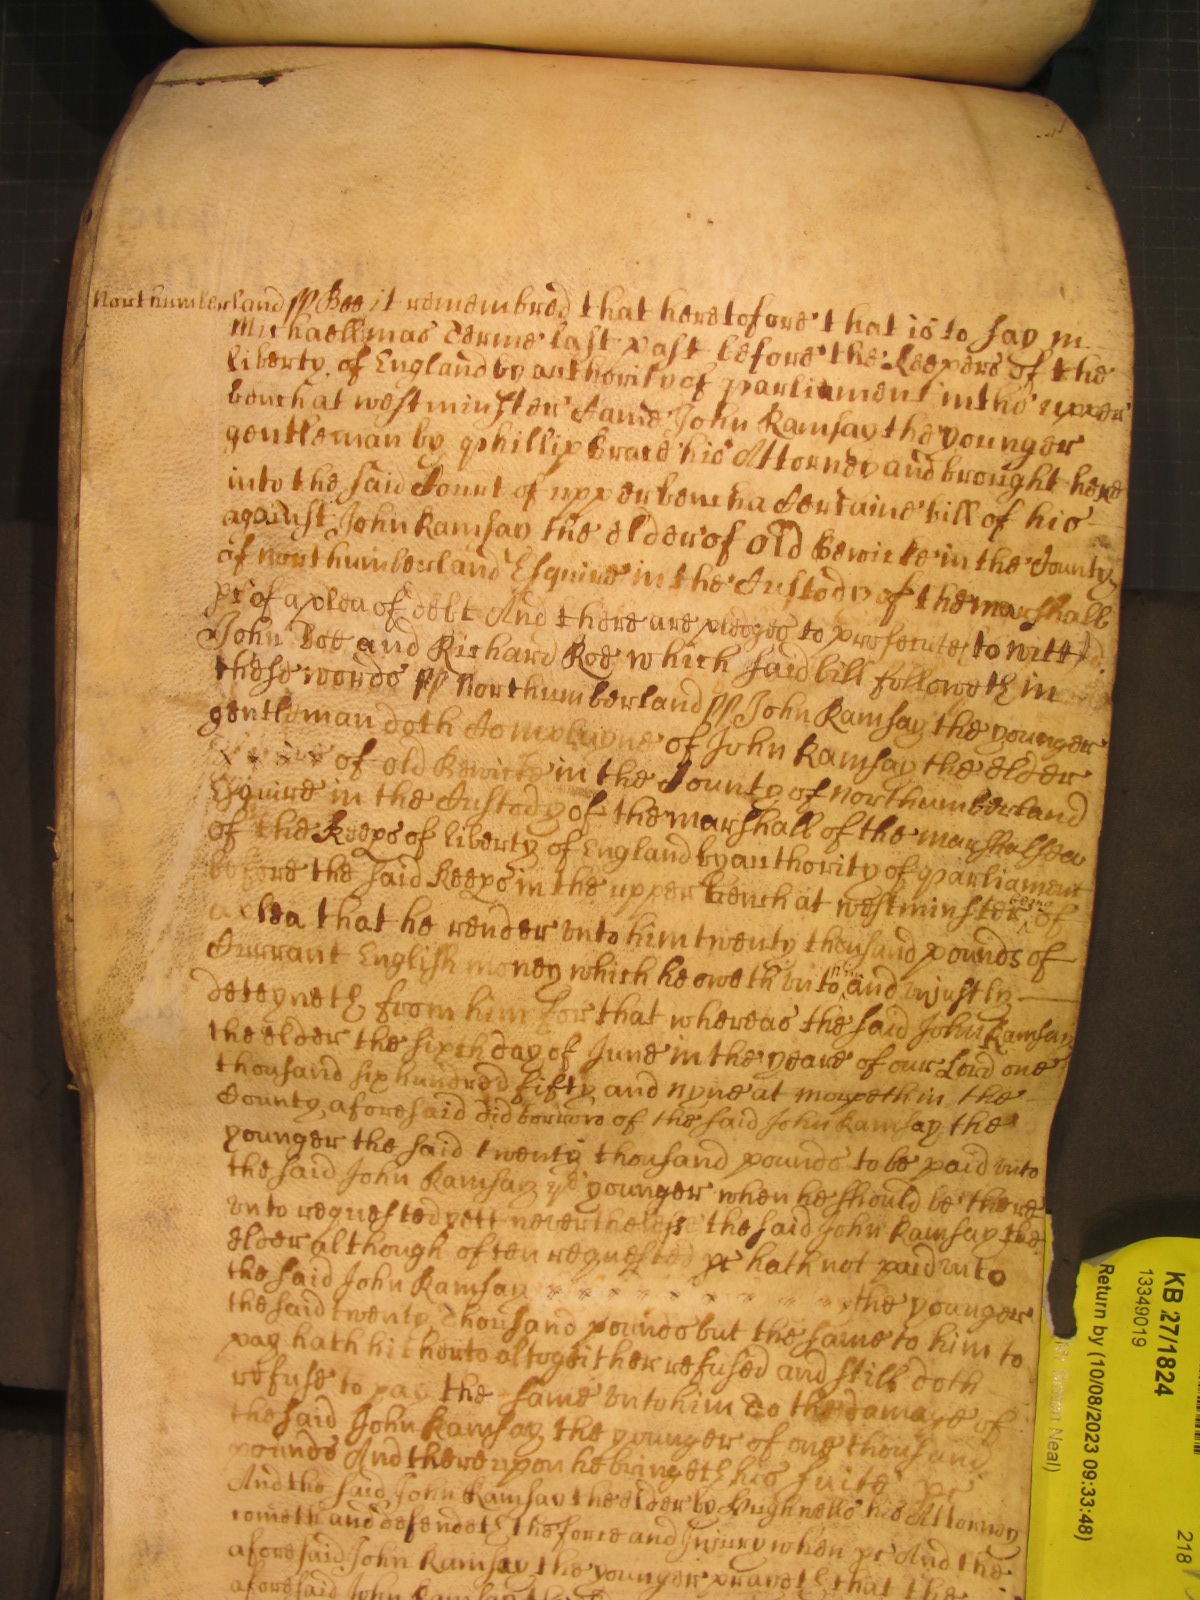 Northumberland ss Bee it remembred that heretofore that is to say in
Michaellmas Terme last past before the Keepers of the
liberty of England by authority of parliament in the upper
bench at westminster Came John Ramsay the younger
gentleman by phillip his Attorney and brought here
into the said Court of upper bench a Certaine bill of his
against John Ramsay the elder of old Bewicke in the County
of Northumberland Esquire in the Custody of the marshall
&c of a plea of debt And there are pledges to prosecute to witt
John Doe and Richard Roe which said bill followeth in
these words ss Northumberland ss John Ramsay the younger
gentleman doth Complayne of John Ramsay the elder
of old Bewicke in the County of Northumberland
Esquire in the Custody of the marshall of the marshalsea
of the Keeps of liberty of England by authority of parliament
before the said Keeps in the upper bench at westminster being of
a plea that he render unto him twenty thousand pounds of
Currant English money which he oweth unto him and unjustly
deteyneth from him for that whereas the said John Ramsay
the elder the sixth day of June in the yeare of our Lord one
thousand six hundred fifty and nyne at morpeth in the
County aforesaid did borrow of the said John Ramsay the
younger the said twenty thousand pounds to be paid unto
the said John Ramsay ye younger when he should be there
unto requested yett nevertheless the said John Ramsay the
elder although often requested &c hath not paid unto
the said John Ramsay the younger
the said twenty thousand pounds but the same to him to
pay hath hitherto altogeither refused and still doth
refuse to pay the same unto him to the damage of
the said John Ramsay the younger of one thousand
pounds And thereupon he bringeth his suite &c
And the said John Ramsay the elder by Hugh his Attorney
cometh and defendeth the force and Injury when &c And the
aforesaid John Ramsay the younger prayeth that the
aforesaid John Ramsay
KB 27/1824
13349019
Return by (10/08/2023 09:33:48)
Neal)
218